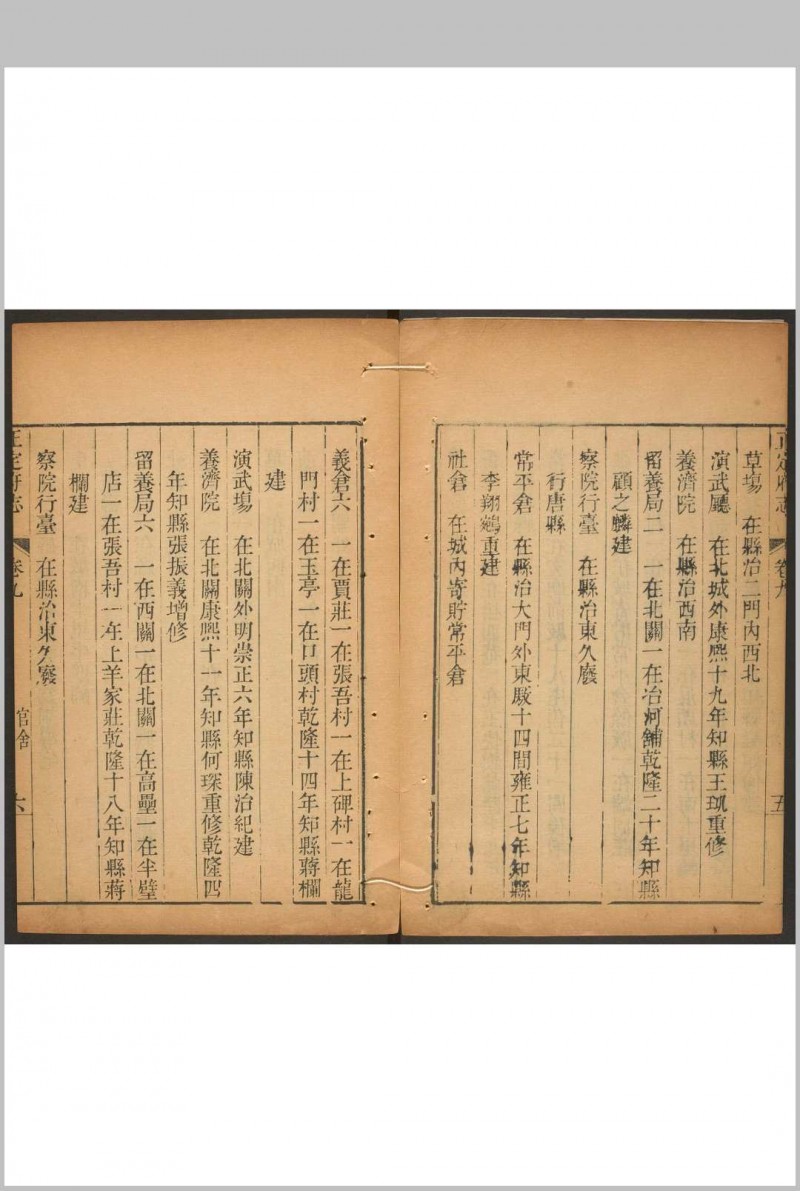 正定府志 卷九 五
草塲 在縣治二門內西北
演武廳 在北城外康熙十九年知縣王玑重修
養濟院 在縣治西南
留養局二 一在北關一在冶河舖乾隆二十年知縣
顧之麟建
察院行臺 在縣治東久廢
行唐縣
常平倉 在縣治大門外東厫十四間雍正七年知縣
李翔鵷重建
社倉 在城內寄貯常平倉
義倉六 一在賈莊一在張吾村一在上碑村一在龍
門村一在玉亭一在口頭村乾隆十四年知縣蔣欄
建
演武塲 在北關外明崇正六年知縣陳治紀建
養濟院 在北關康熙十一年知縣何琛重修乾隆四
年知縣張振義增修
留養局六 一在西關一在北關一在高壘一在半壁
店一在張吾村一在上羊家莊乾隆十八年知縣蔣
欄建
察院行臺 在縣治東久廢
正定府志 卷九 官舍 六